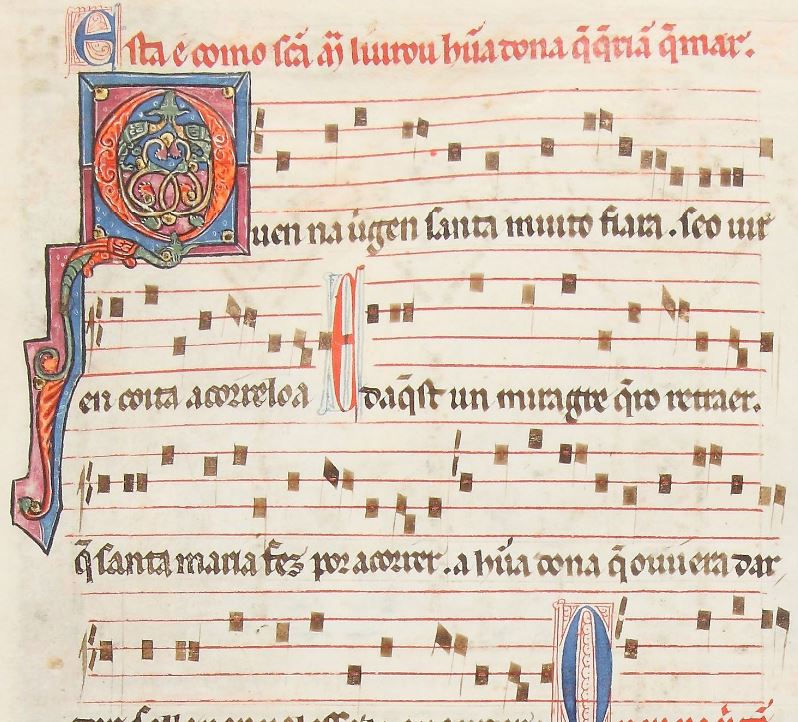 Esta e como scã mã liurou hũa dona q̃ q̃riã q̃mar.
Quen na uigen santa muito fiara . seo uir
en coita acorreloa E daq̃st un miragre q̃ro retraer.
q̃ santa maria fez por acorrer . a hũa dona q̃ ouuera dar